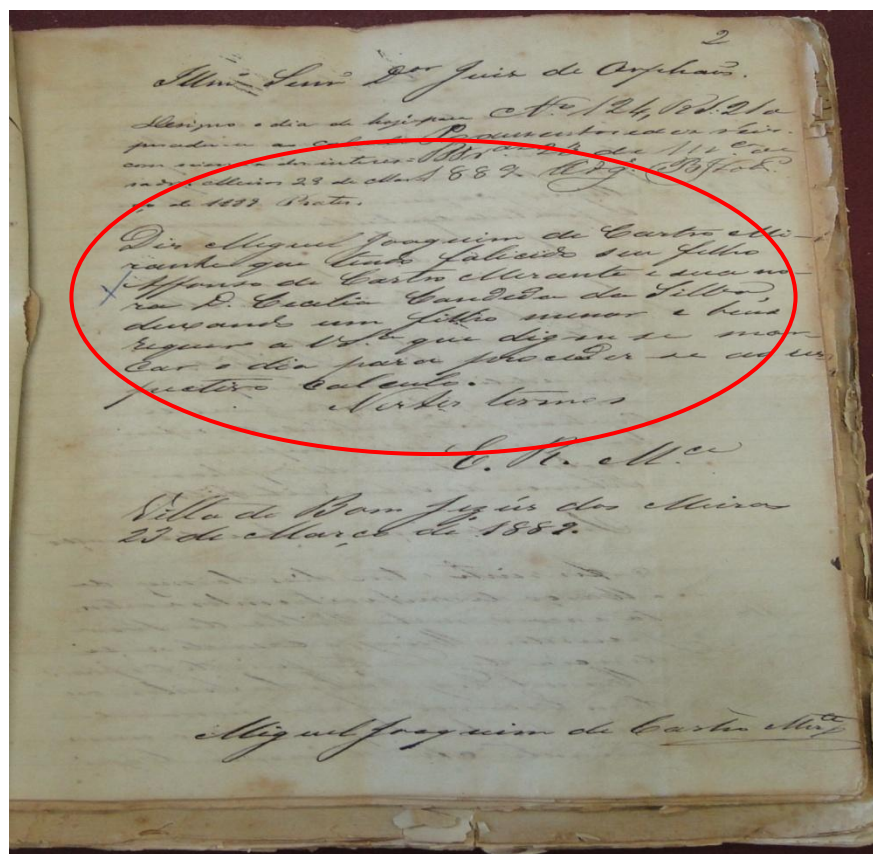 2
Illmo Senr Dor Juis de Orphaõs.
Designo o dia de hoje para
proceder-se ao calculo
com sciencia dos interes-
sados. Meiras 23 de Mar-
ço de 1882. Prates.
No 124, Rs. 210
Pg. duzentos e dez reis.
23 de Mço de
1882
Diz Miguel Joaquim de Castro Mi-
rante que tendo falicido seu filho
Affonso de Castro Mirante e sua no-
ra D. Cecilia Candida da Silva
deixando um filho menor e bens
requer a V.Sa que digne-se mar-
car o dia para proceder-se ao res-
pectivo Calculo.
Nestes termos
E. R. Mce
Villa do Bom Jezús dos Meiras
23 de Março de 1882.
Miguel Joaquim de Castro Mirte